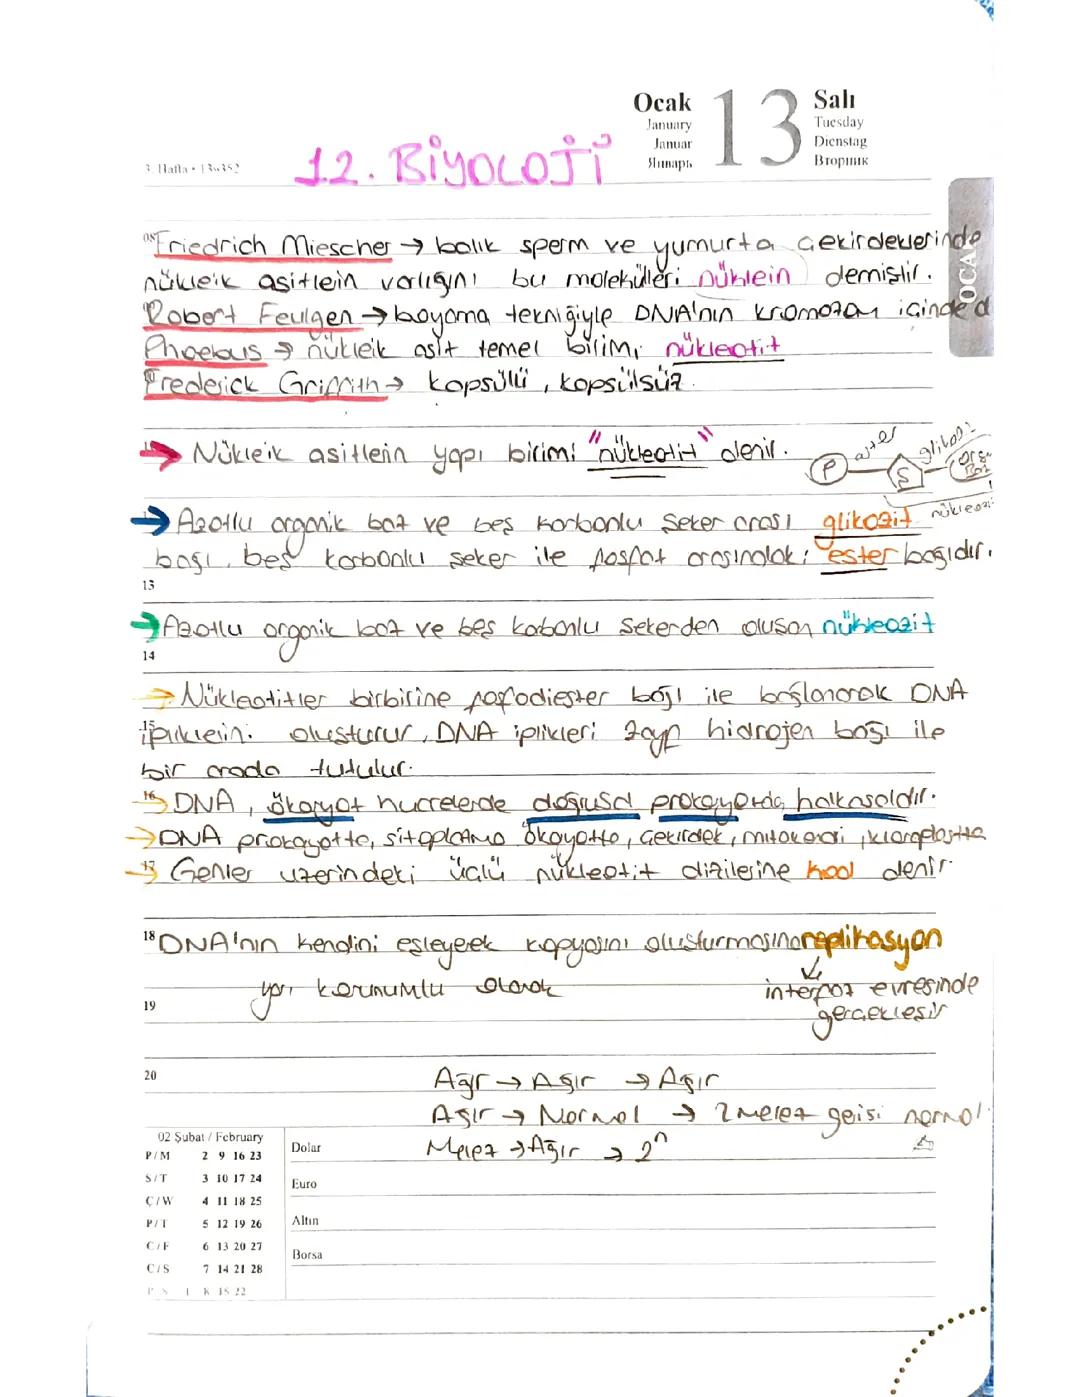 Ocak
January
Januar
Январь
13
Salı
Tuesday
Dienstag
Вторник
3. Hafta • 13-352
12. BİYOLOJİ
OCAK
08 Friedrich Miescher → balık sperm ve yumurta çekirdeklerinde
nükleik asitlein varlığını bu molekülleri nüklein demiştir.
Robert Feulgen → boyama tekniğiyle DNA'nın kromozom içinde d
Phoebus → nükleik asit temel birimi nükleotit
Frederick Griffith → kapsüllü, kapsülsüz.
→ Nükleik asitlein yapı birimi "nükleotit" denir.
P ester S glikozi Org. Baz
nükleozi
→ Azotlu organik baz ve beş karbonlu şeker arası glikozit
bağı, beş karbonlu şeker ile fosfat arasındaki ester bağıdır.
13
→ Azotlu organik baz ve beş kabonlu şekerden oluşan nükleozit
14
→ Nükleotitler birbirine fosfodiester bağı ile bağlanarak DNA
15 iplikleini oluşturur, DNA iplikleri zayıf hidrojen bağı ile
bir arada tutulur.
16 → DNA, ökaryot hücrelerde doğrusal prokaryotda halkasaldır.
→ DNA prokaryotta, sitoplazma ökayotta, çekirdek, mitokondri, kloroplastta
17 → Genler üzerindeki üçlü nükleotit dizilerine kod denir.
18 DNA'nın kendini eşleyerek kopyasını oluşturmasına replikasyon
yarı korunumlu olarak
↓
interfaz evresinde
19
gerçekleşir
20
Ağır → Ağır → Ağır
Ağır → Normal → 2 melez gerisi normal
Melez → Ağır → 2ⁿ
02 Şubat / February
P/M 2 9 16 23
S/T 3 10 17 24
Ç/W 4 11 18 25
P/T 5 12 19 26
C/F 6 13 20 27
C/S 7 14 21 28
P/S 1 8 15 22
Dolar
Euro
Altın
Borsa